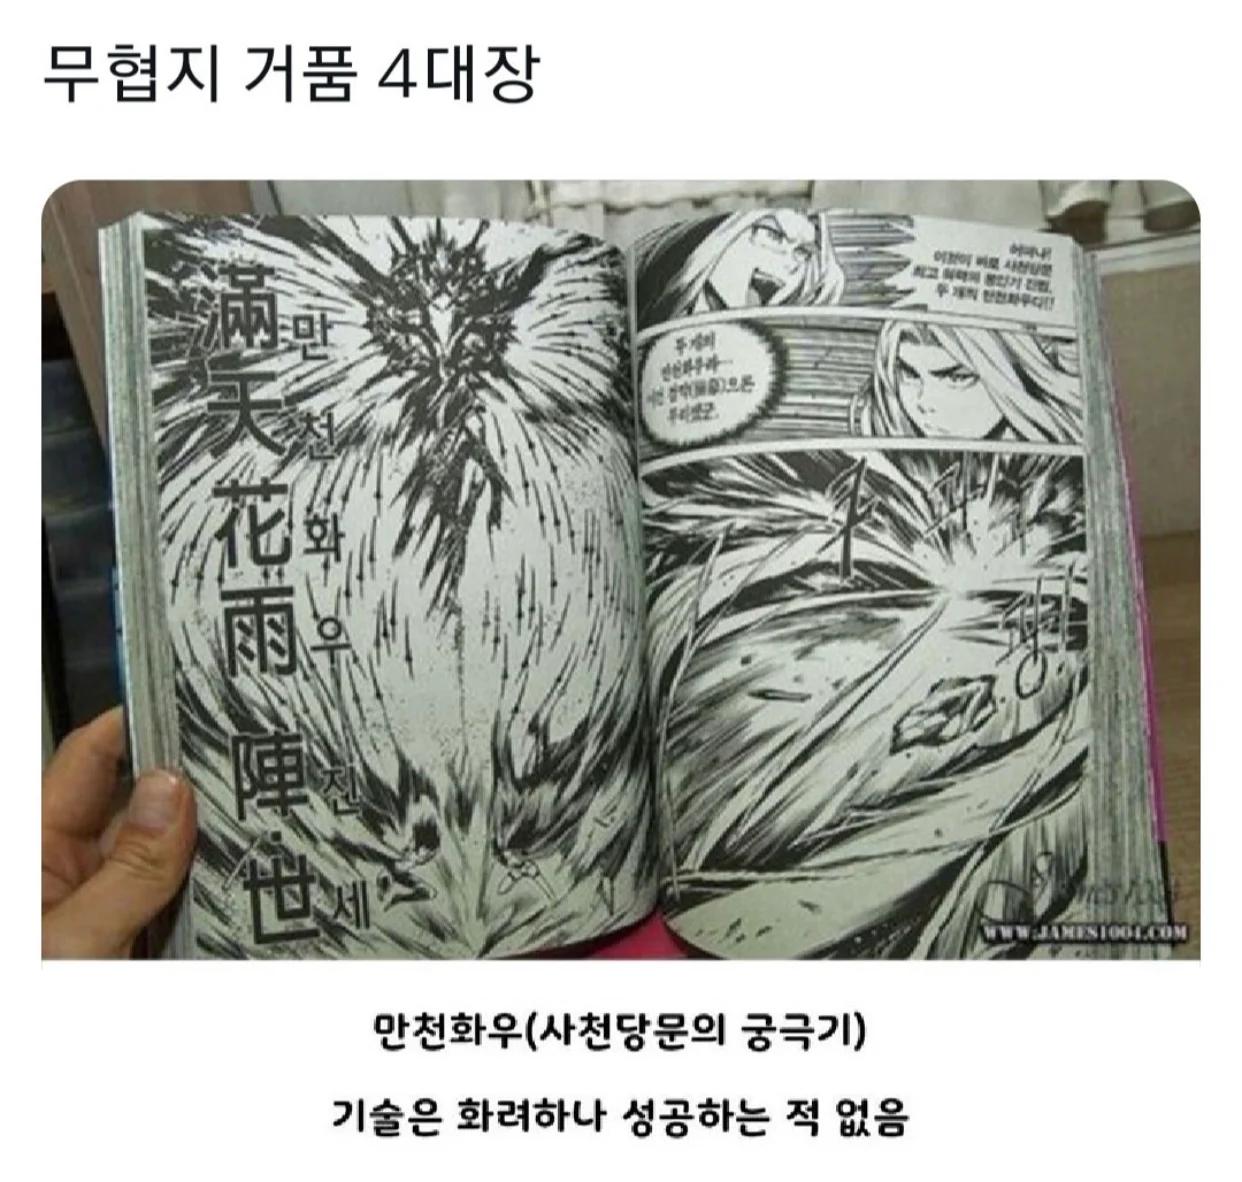 무협지 거품 4대장
滿天花雨陣·世
만천화우진세
어떠냐!
이것이 바로 사천당문
최고 위력의 봉인기 진법,
두 개의 만천화우다!!
두 개의
만천화우라…
으론
무리였군.
WWW.JAMES1004.COM
만천화우(사천당문의 궁극기)
기술은 화려하나 성공하는 적 없음